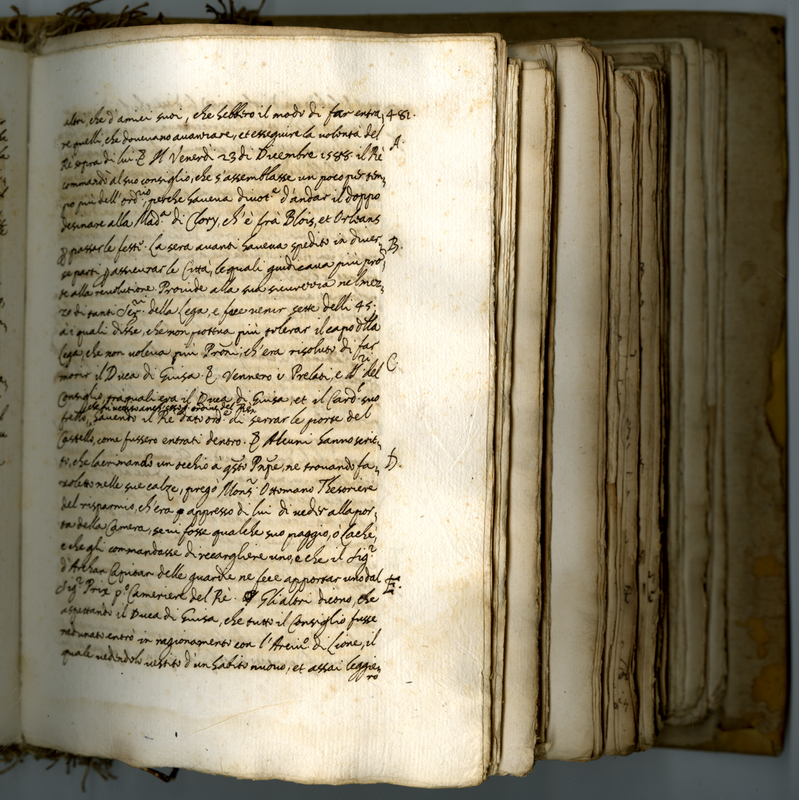 altri, che d'amici suoi, che hebbero il modo di far entra= 481.
re quelli, che doveuano auantiare, et esseguire la volontà del
Rè sopra di lui & Il Venerdi 23 di Dicembre 1588. il Rè A.
commandò al suo consiglio, che s'assemblasse un poco per tem=
po più dell'ord.rio, perche haueua diuot.e d'andar il doppo
desinare alla Mad.a di Clory, ch'è frà Blois, et Orleans
p passar le feste. La sera auanti haueua spedito in diuer= B.
se parti p assicurar le Città, le quali giudicaua più pro=
te alla reuolutione. Prouide alla sua sicurezza nel mez=
zo di tanti Seg.ri della Lega, e fece venir sette delli 45.
à i quali disse, che non poteua più tolerar il capo dlla
Lega, che non voleua più Prōni, ch'era risoluto di far
morir il Duca di Guisa. & Vennero i Prelati, e del C.
Consiglio, tra quali era il Duca di Guisa, et il Card.l suo
fratello, hauendo il Rè dato ord.e di serrar le porte del
Castello, come fussero entrati dentro. & Alcuni hanno scrit=
to, che lacrimando un occhio à qsto Pnpe, ne trouando fa= D.
zoletto nelle sue calze, pregò Mons.r Ottomano Thesoriere
del risparmio, ch'era p appresso di lui di veder alla por=
ta della Camera, se vi fosse qualche suo paggio, ò Lachè,
e che gli commandasse di recargliere uno, e che il Sig.r
d'Archan Capitan delle guardie ne fece apportar uno dal
Sig.r Prix p.o Cameriere del Rè. & Gli altri dicono, che E.
aspettando il Duca di Guisa, che tutto il Consiglio fusse
radunato entrò in ragionamento con l'Arciu.o di Lione, il
quale vedendolo vestito d'un habito nuouo, et assai leggie=
ro